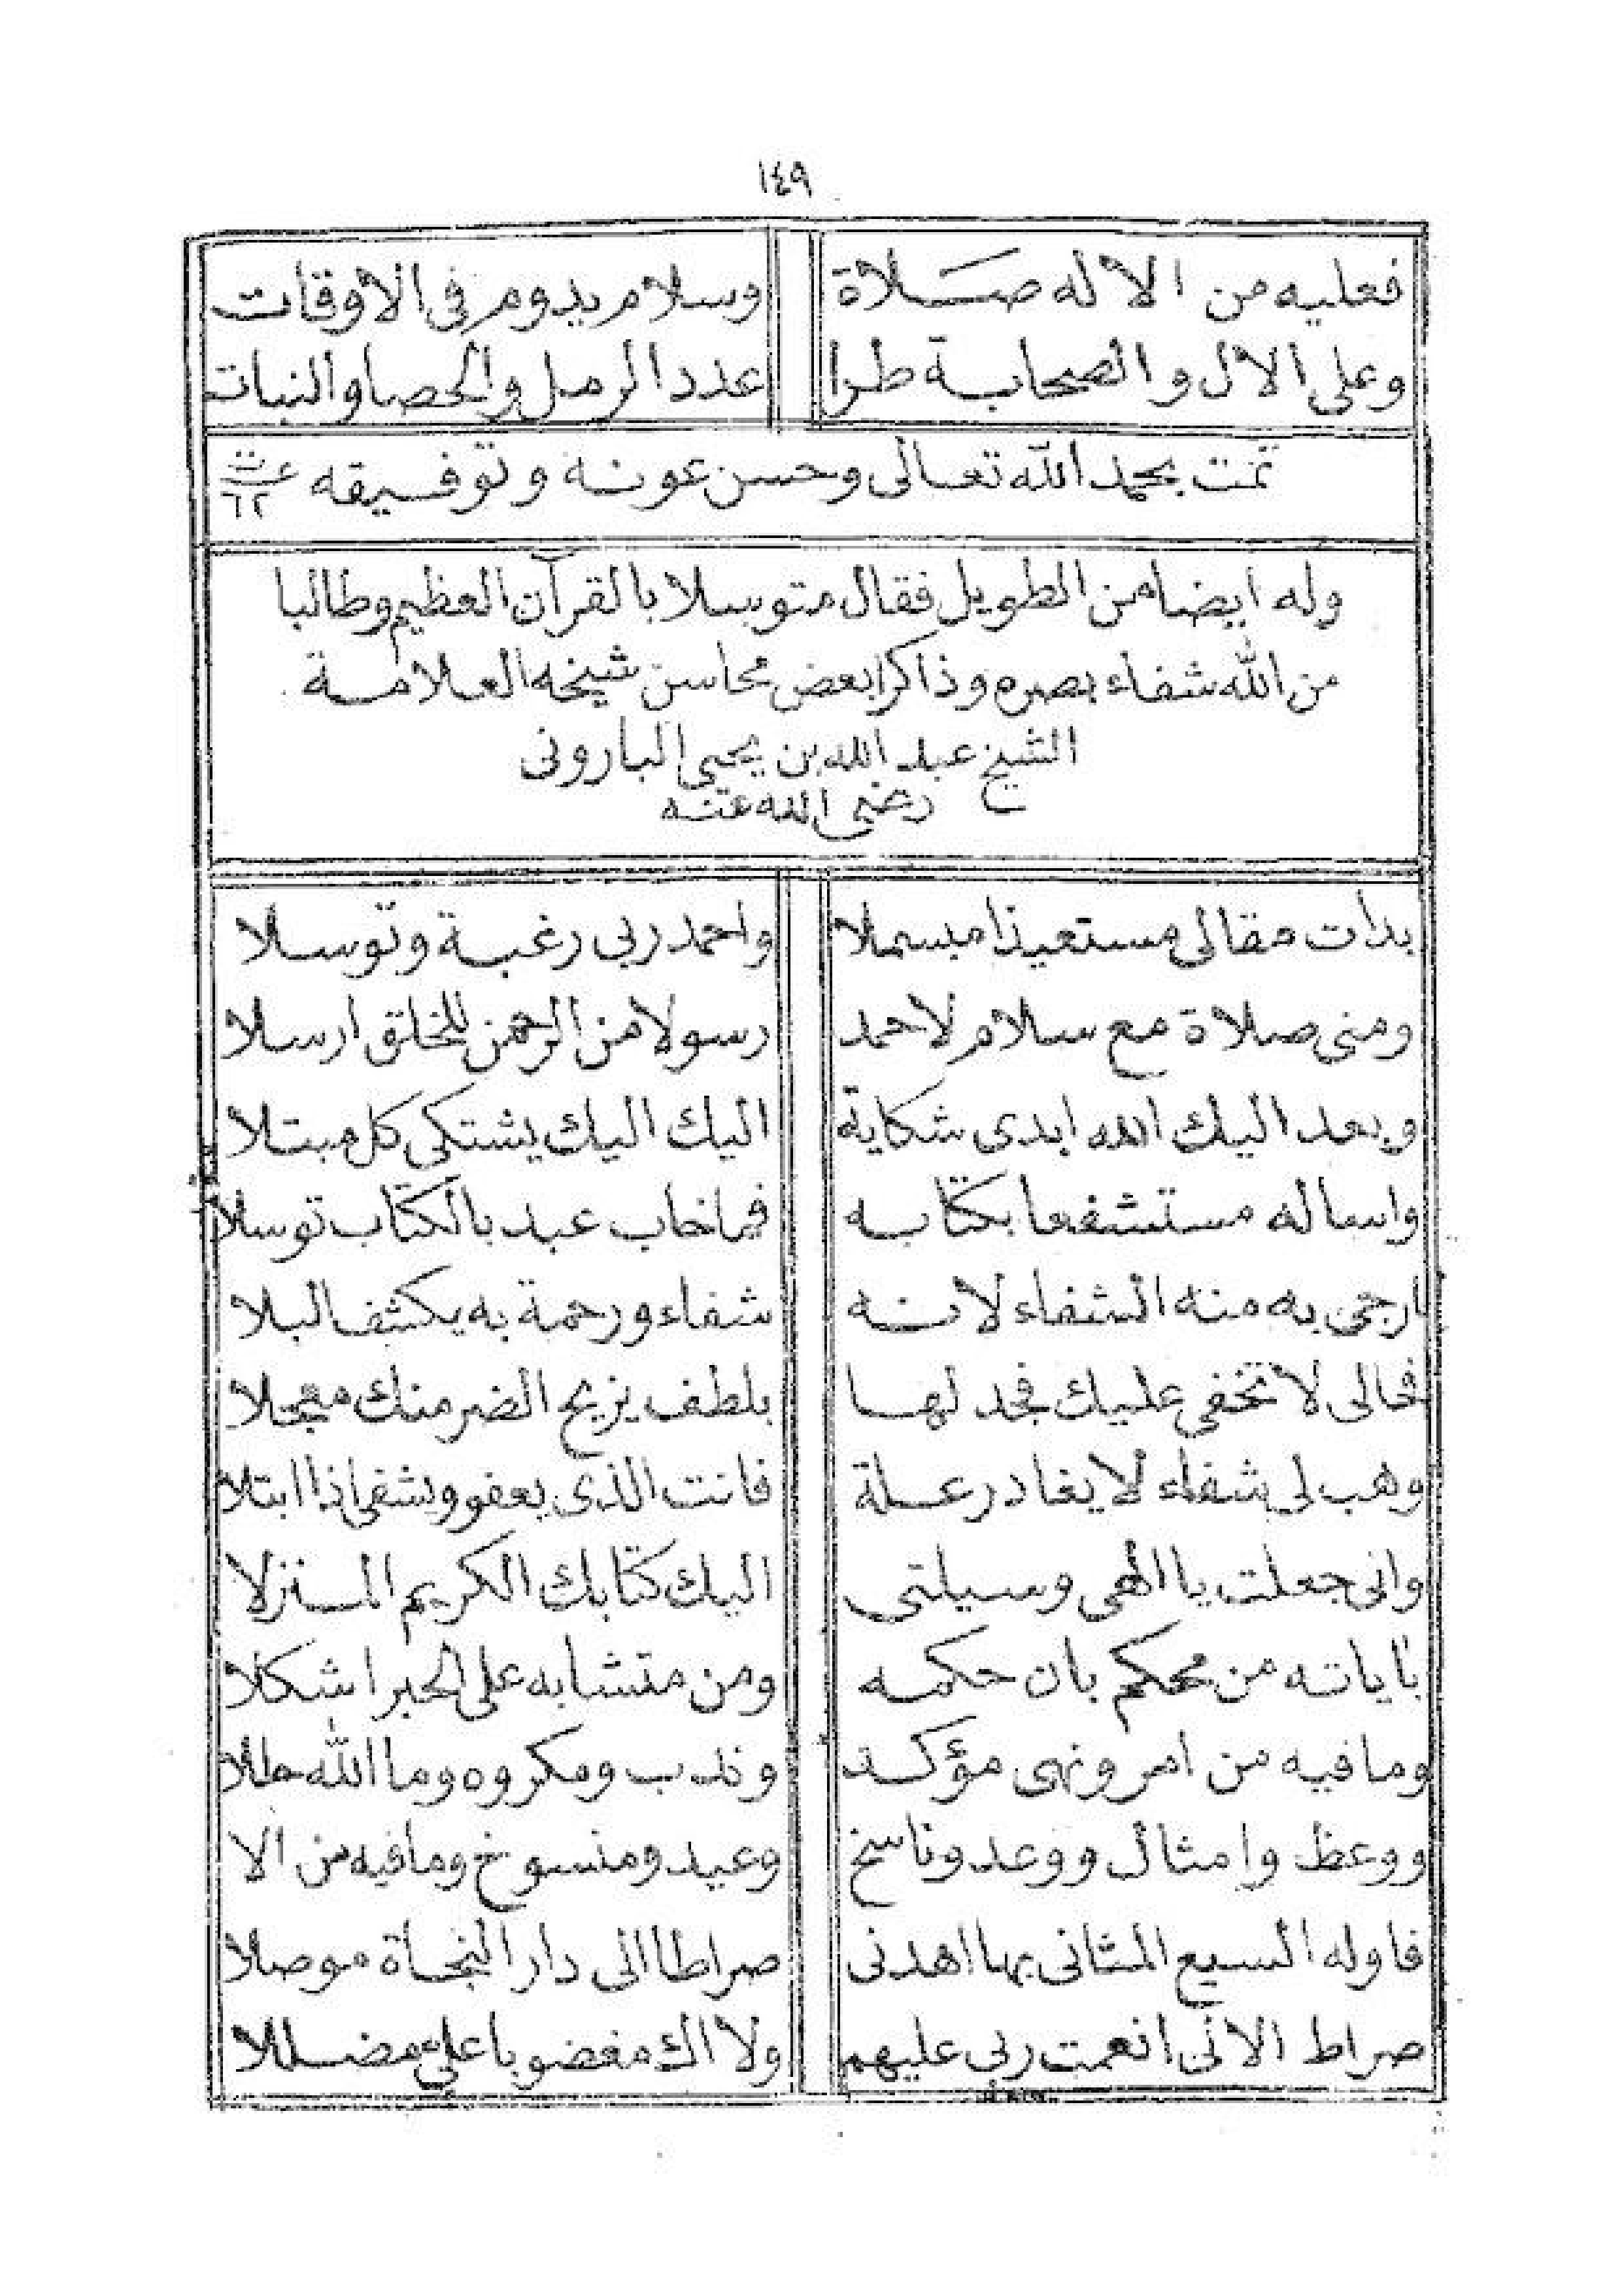 ١٤٩
فعليه من الاله صلاة وسلام يدوم فى الاوقات
وعلى الال والصحابة طرا عدد الرمل والحصا والنبات
تمت بحمد الله تعالى وحسن عونه وتوفيقه عت ٦٢
وله ايضا من الطويل فقال متوسلا بالقرآن العظيم وطالبا
من الله شفاء بصره وذاكرا بعض محاسن شيخه العلامة
الشيخ عبد الله بن يحيى البارونى
رضى الله عنه
بدات مقالى مستعيذا مبسملا واحمد ربى رغبة وتوسلا
ومنى صلاة مع سلام لاحمد رسولا من الرحمن للخلق ارسلا
وبعد اليك الله ابدى شكاية اليك اليك يشتكى كل مبتلا
واساله مستشفعا بكتابه فما خاب عبد بالكتاب توسلا
ارجى به منه الشفاء لانه شفاء ورحمة به يكشف البلا
فحالى لا تخفى عليك فجد لها بلطف يزيح الضر منك معجلا
وهب لى شفاء لا يغادر علة فانت الذى يعفو ويشفى اذا ابتلا
وانى جعلت يا الهى وسيلتى اليك كتابك الكريم المنزلا
باياته من محكم بان حكمه ومن متشابه على الحبر اشكلا
وما فيه من امر ونهى مؤكد وندب ومكروه وما الله حللا
ووعظ وامثال ووعد وناسخ وعيد ومنسوخ وما فيه من الا
فاوله السبع المثانى بها اهدنى صراطا الى دار النجاة موصلا
صراط الالى انعمت ربى عليهم ولا اك مغضوبا على مضللا